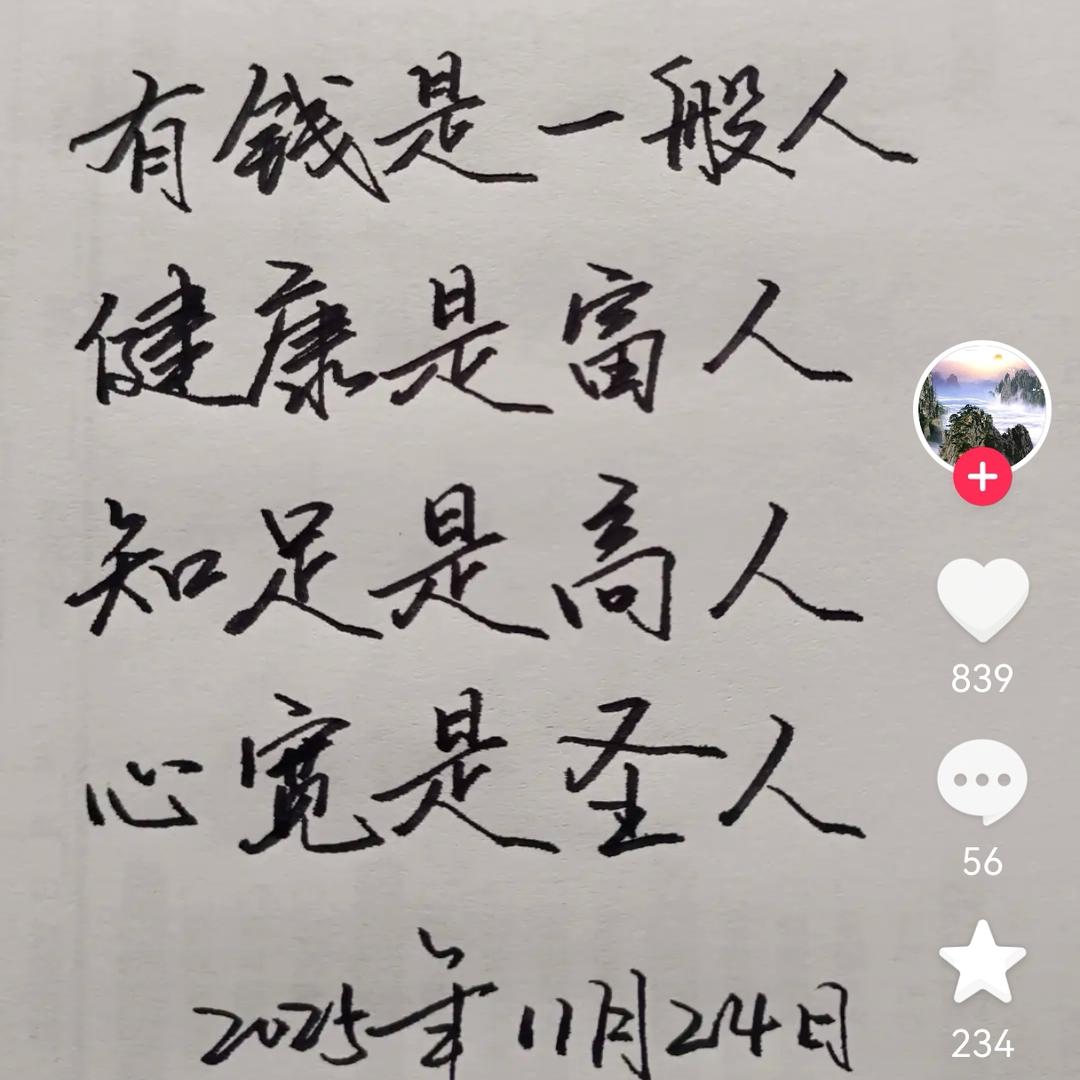 有錢是一般人
健康是富人
知足是高人
心宽是圣人
2025年11月24日
839
56
234